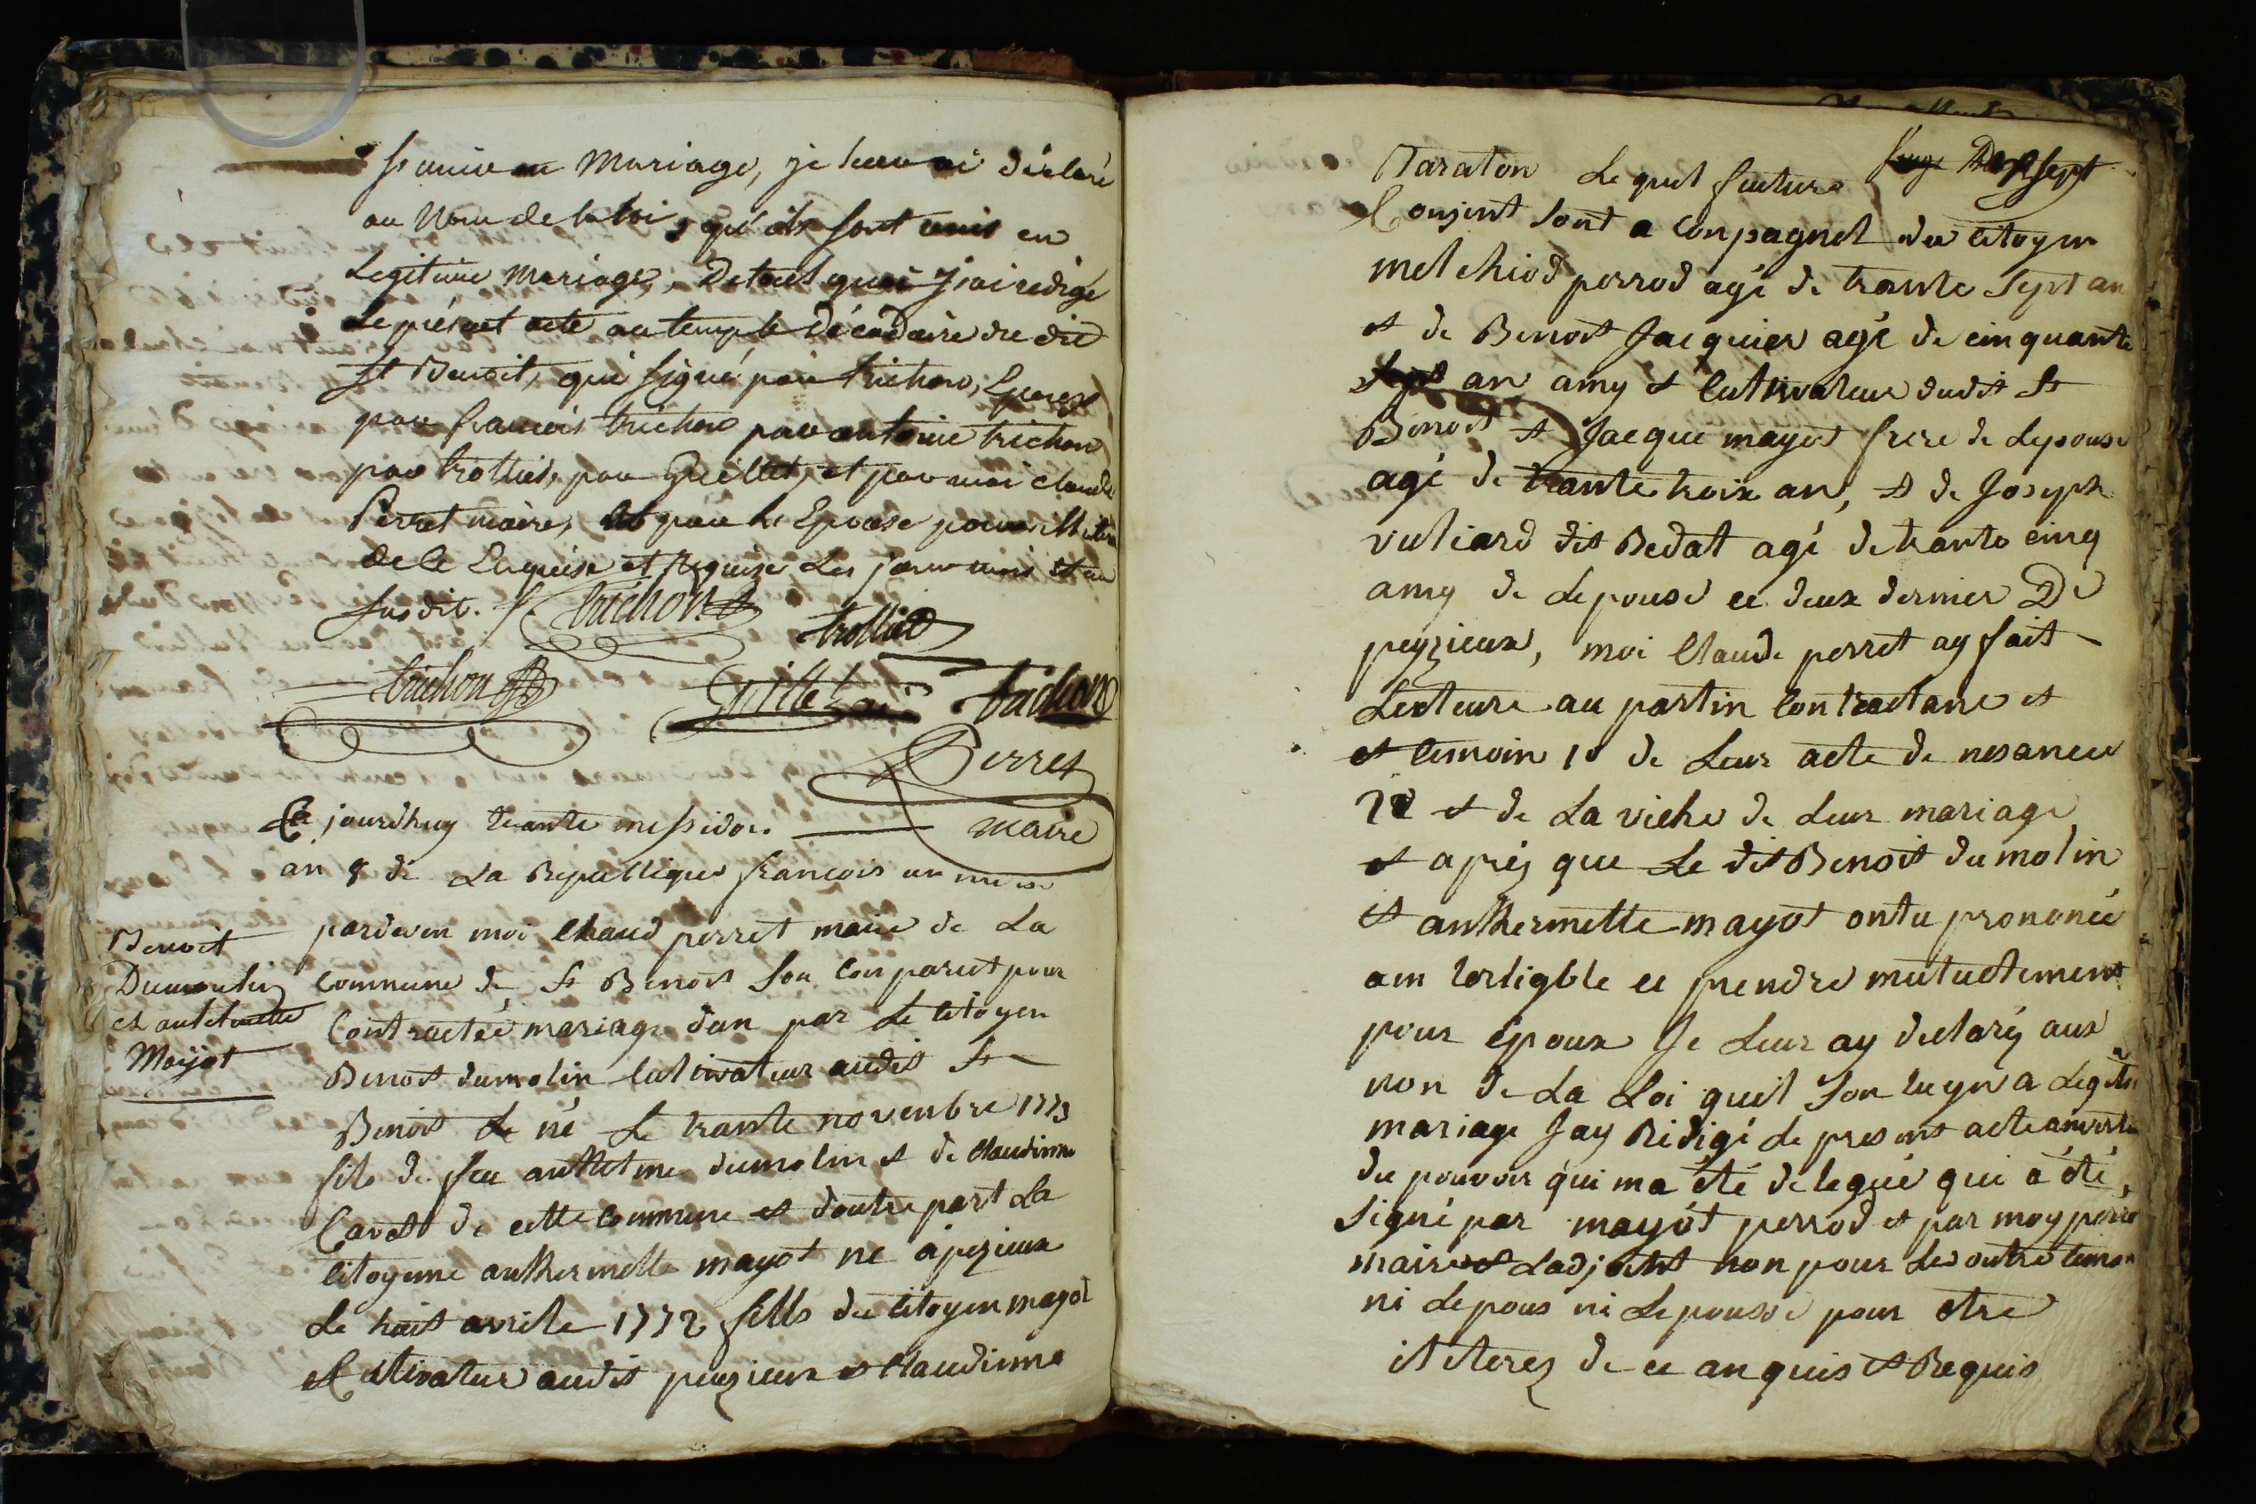 s'unir en Mariage, je leur ai déclaré
au Nom de la loi, qu'ils sont unis en
Legitime Mariage, De tout quoi j'ai rédigé
Le présent acte au temple décadaire du dit
St Benoit, qui signé par trichon, Epoux
par francois trichon par antoine trichon
par trolliet, par Guillet, et par moi claude
Perret maire, et par la Epouse pour illitere
de le Enquise et Requise Les jour mois et an
susdit.
trichon
trolliet
trichon
Guillet
trichon
Perret
maire
Ce jourdhuy trante messidor
an 8 de La Republique francois une
Benoit
Dumoulin
et antelmette
Mayot
pardevan moi Claud perret maire de La
Commune de St Benoit son conparut pour
Contractée mariage dun par Le Citoyen
Benoit dumolin Cultivateur audit St
Benoit Le né Le trante novenbre 1773
fils de feu anthelme dumolin et de Claudinne
Cavat de cette commune et doutre part La
Citoyenne anthermette mayot ne a pezieux
Le huit avrile 1772 fille du Citoyen mayot
Cultivateur audit peyzieux et Claudinne
Taraton Le quel future
Dix sept
Conjent sont a Conpagnet du Citoyen
melchiod perrod agé de trante sept an
et de Benoit Jacquier agé de cinquante
sept an amy et Cultivateur dudit St
Benoit et Jacque mayot frere de Lepouse
agé de trante troix an, et de Joseph
vuliard dit Bedat agé de trante cinq
amy de Lepouse ce deux dernier De
peyzieux, moi Claude perret ay fait
Lecteure au partin Contractant et
et temoin 1º de Leur acte de nesance
2º et de La viche de Leur mariage
et aprés que Le dit Benoit dumolin
et anthermette mayot ontu prononcé
am ce prendre mutuelement
pour époux Je Leur ay declaré aux
non de La Loi quil son uny a Legitime
mariage Jay Redigé Le present acte
du pouvoir qui ma été delegué qui a été
Signé par mayot perrod et par moy perret
maire et Ladjoint non pour Les outre temoin
ni Lepous ni Lepousse pour etre
iliterez de ce anquis et Requis